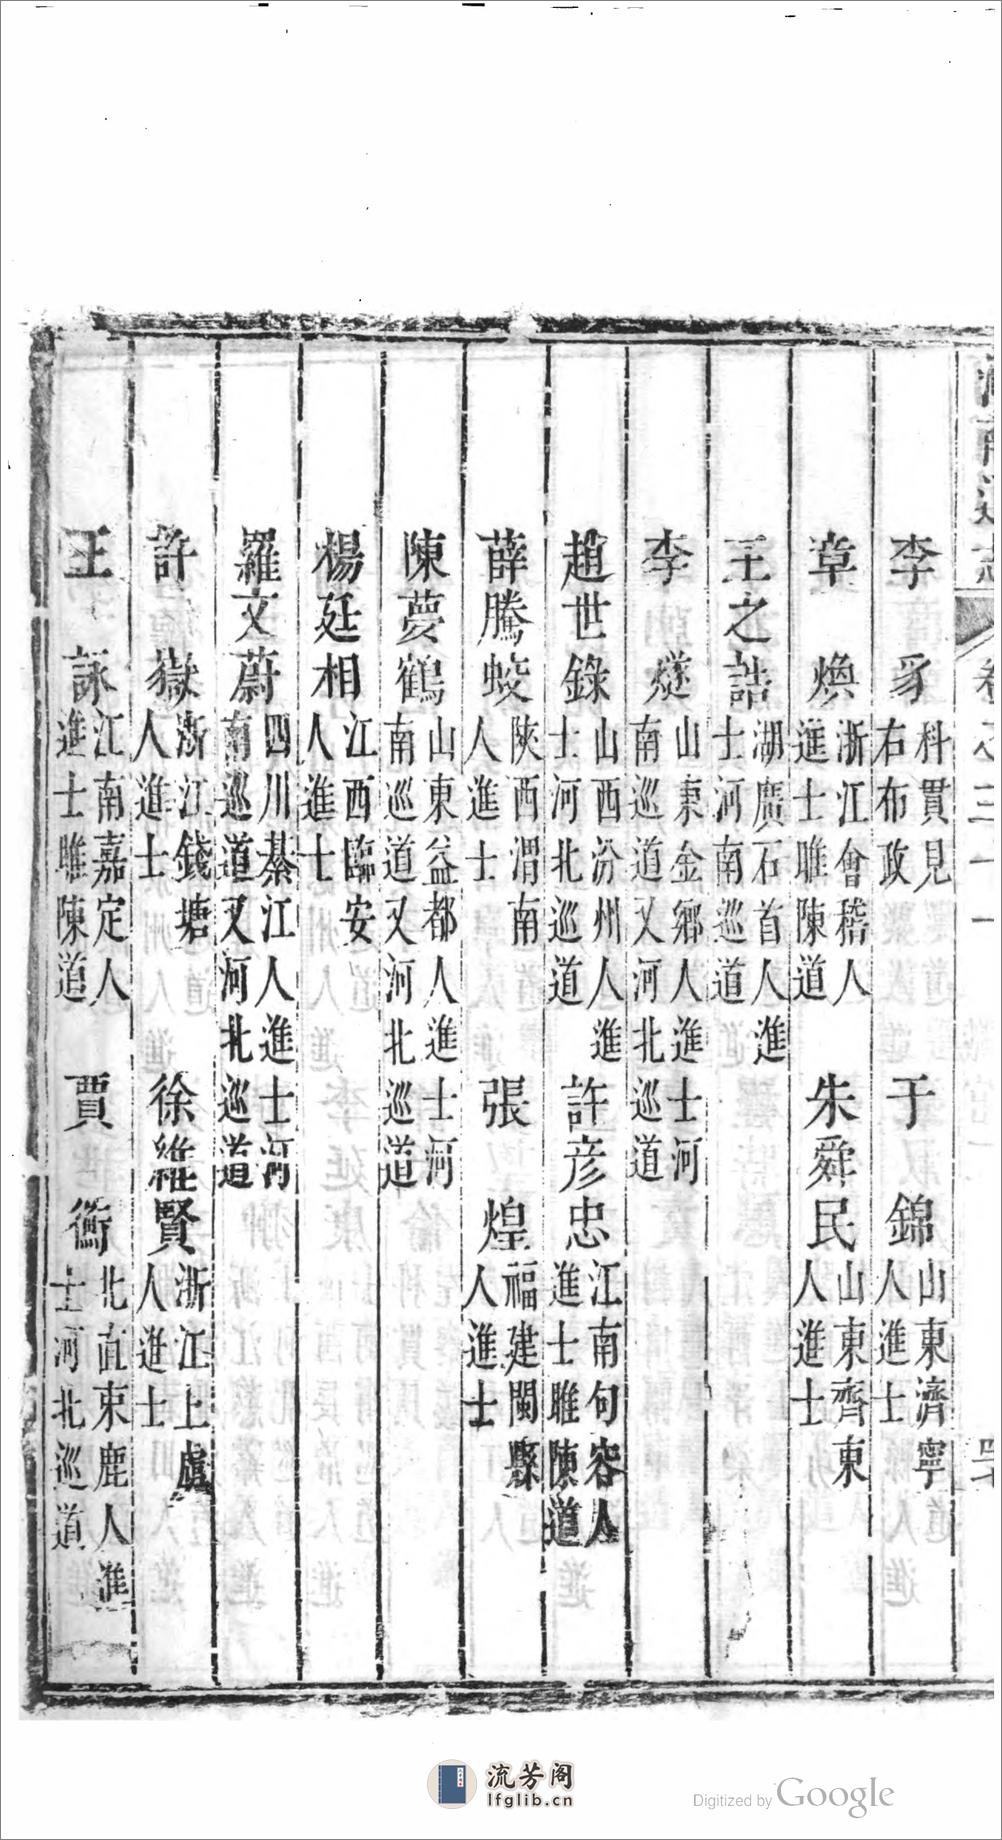 李豸科貫見右布政 于錦山東濟寧人進士
章煥浙江會稽人進士睢陳道 朱舜民山東齊東人進士
王之誥湖廣石首人進士河南巡道
李燧山東金鄉人進士河南巡道又河北巡道
趙世錄山西汾州人進士河北巡道 許彦忠江南句容人進士睢陳道
薛騰蛟陝西渭南人進士 張煌福建閩縣人進士
陳夢鶴山東益都人進士河南巡道又河北巡道
楊廷相江西臨安人進士
羅文蔚四川綦江人進士河南巡道又河北巡道
許嶽浙江錢塘人進士 徐維賢浙江上虞人進士
王詠江南嘉定人進士睢陳道 賈衡北直束鹿人進士河北巡道
流芳阁
lfglib.cn
Digitized by Google